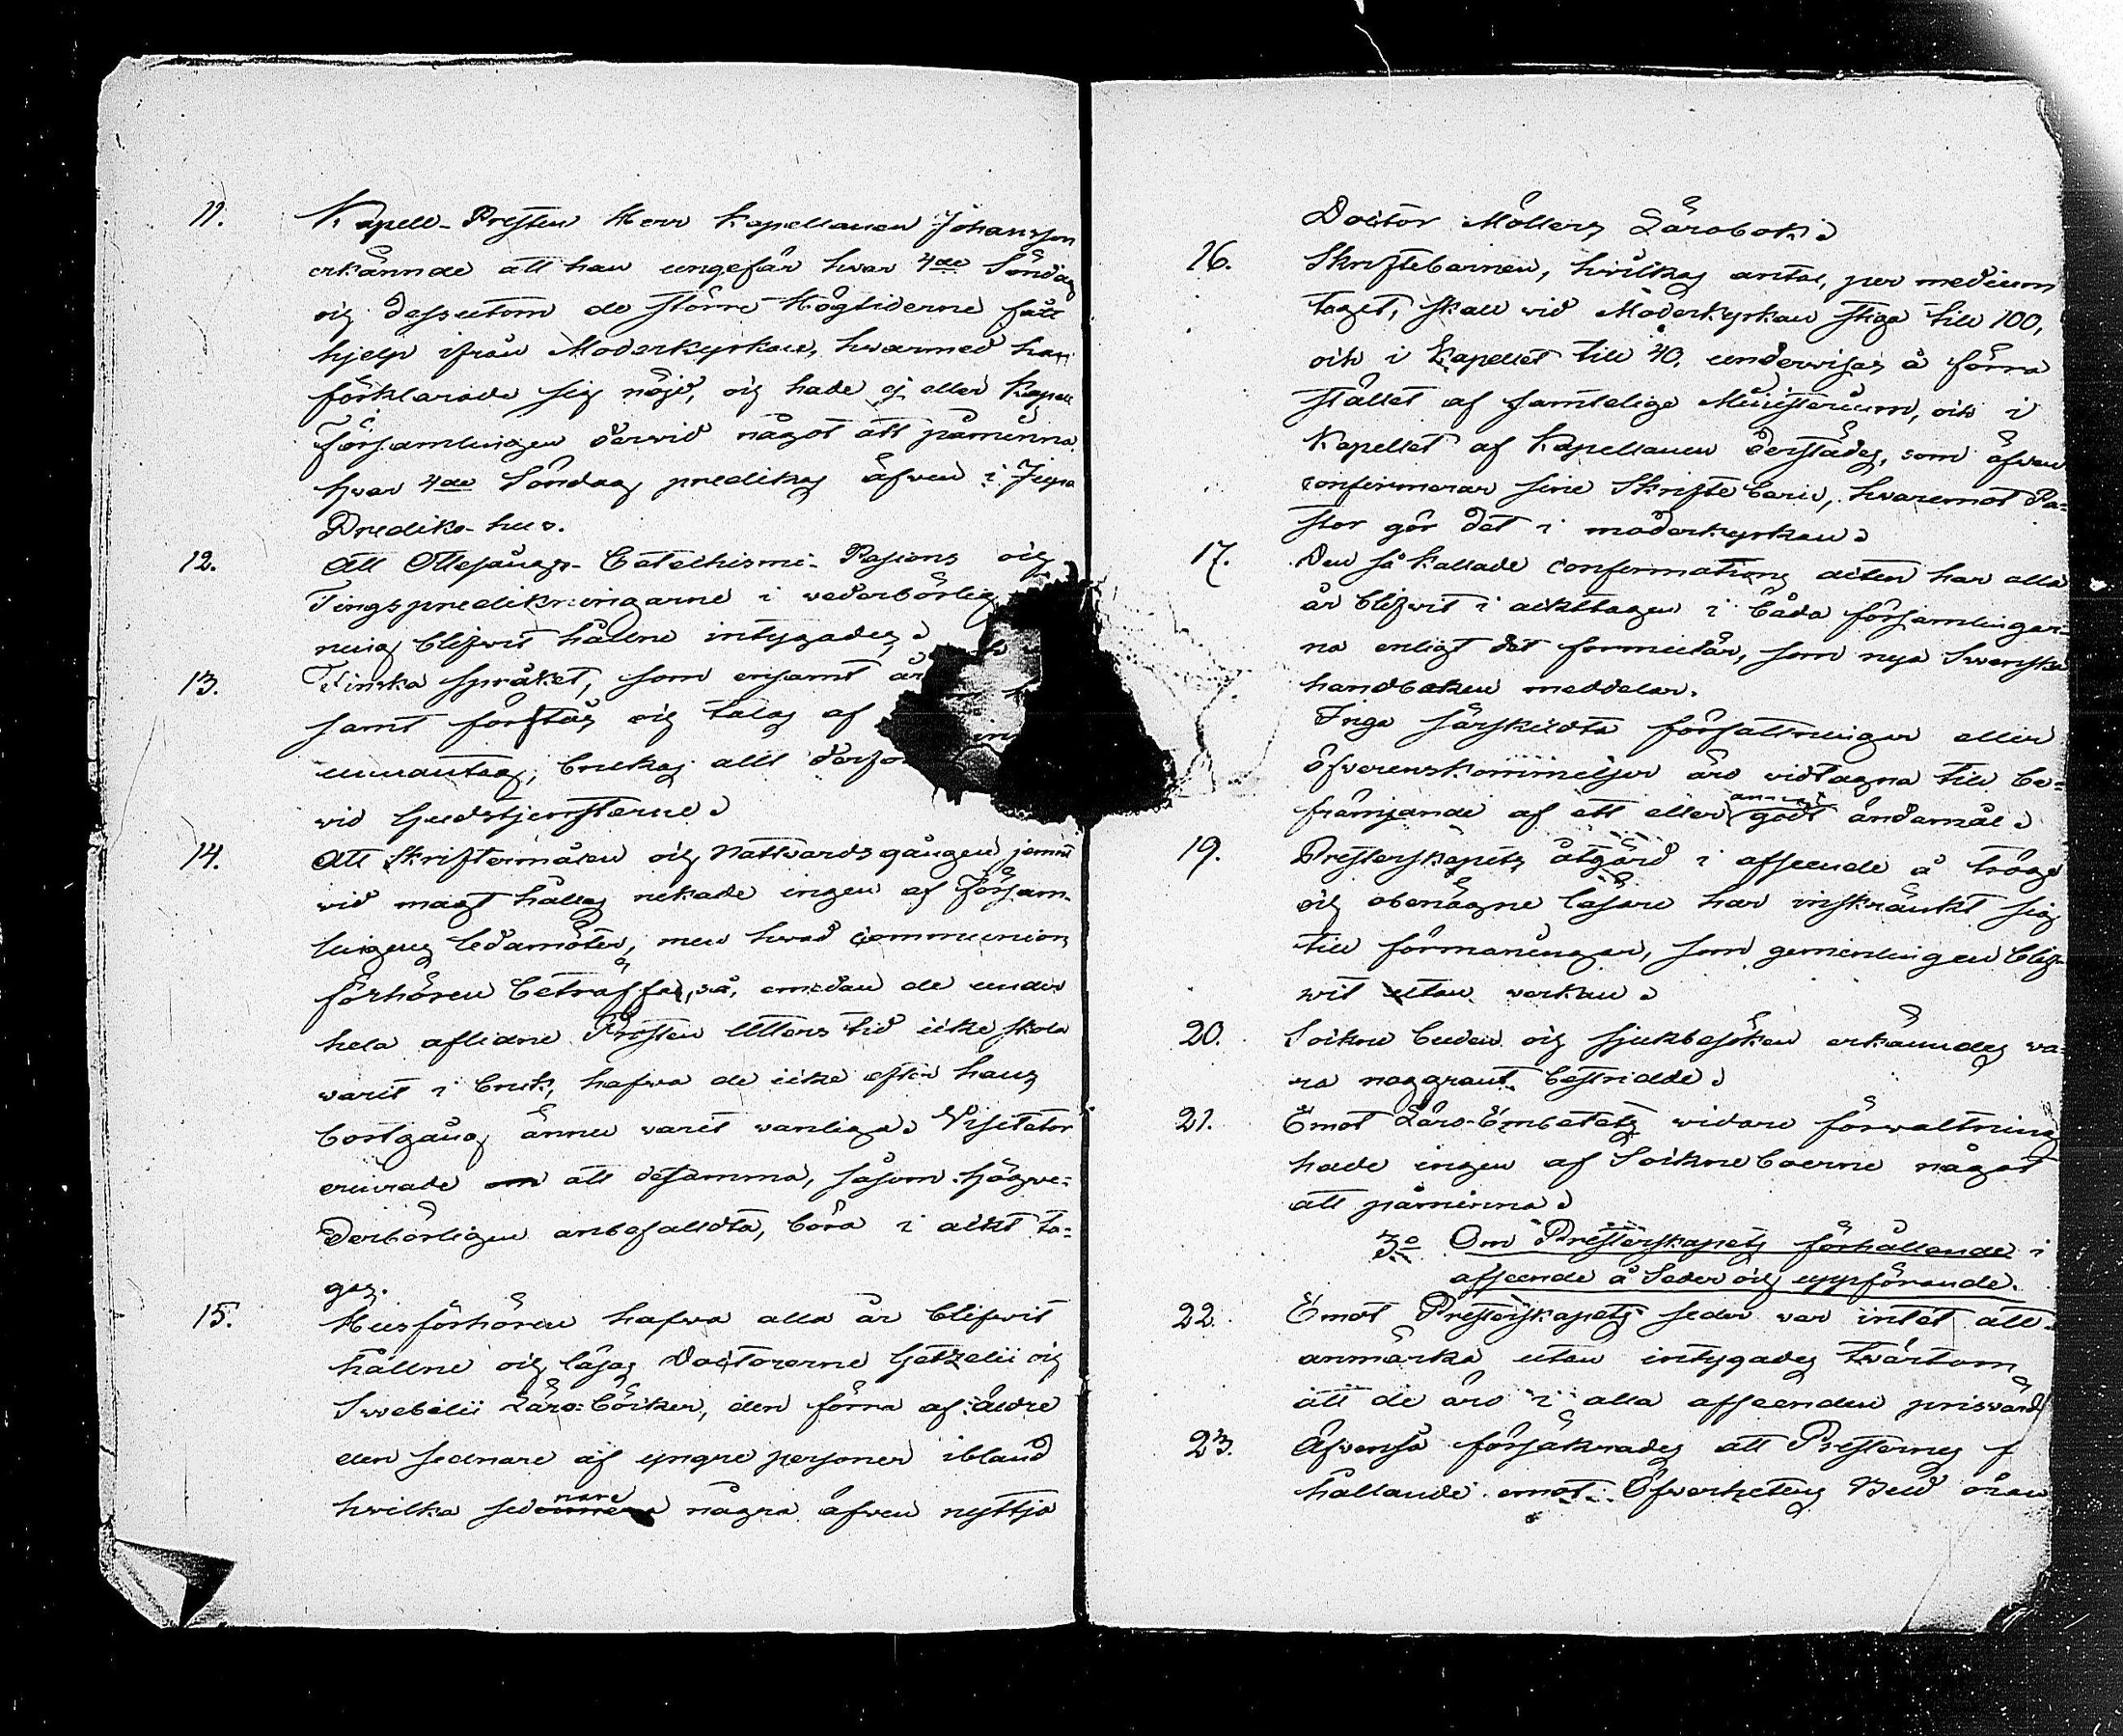 11. Kapell-Presten Herr Kapellanen Johansson
erkännde att han ungefär hvar 4de Söndag
och dessutom de större Högtiderne fått
hjelp ifrån Moderkyrkan, hwarmed han
förklarade sig nöjd, och hade ej eller Kapell
Församlingen dervid något att påminna
hvar 4de Söndag predikas äfven i
Prediko-hus.
12. Att Ottesångs- Catechismi- Passions och
Tingspredikningarne i vederbörlig
ning blifvit hållne intygades.
13. Finska språket, som ensamt är
samt förstås och talas af
unnantag, brukas allt derför
vid Gudstjensterne.
14. Att Skriftermålen och Nattvardsgången jemnt
vid magt hållas nekade ingen af Försam-
lingens ledamöter, men hvad Communion
förhören beträffar, så, emedan de under
hela aflidne Prosten Utters tid icke skola
varit i bruk, hafva de icke efter hans
bortgång ännu varit vanliga. Visitator
erinrade om att desamma, såsom högve-
derbörligen anbefalldta, böra i ackt ta-
gas.
15. Husförhören hafva alla år blifvit
hållne och läsas Doctorerne Getzelii och
Swebelii Läro-böcker, den förra af äldre
den sednare af yngre personer ibland
hvilka sednare några äfven nyttja
Doctor Möllers Lärobok.
16. Skriftebarnen, hvilkas antal, per medium
taget, skall vid Moderkyrkan stiga till 100,
och i Kapellet till 40, undervisas å förra
stället af samtelige Ministerium, och i
Kapellet af Kapellanen derstädes, som äfven
confirmerar sine Skriftebarn, hvaremot Pa-
stor gör det i moderkyrkan.
17. Den så kallade Confirmations acten har alla
år blifvit i ackttagen i båda församlingar-
na enligt det formulär, som nya Swenska
handboken meddelar.
Inga särskildta författningar eller
öfverenskommelser äro vidtagna till be-
främjande af ett eller annat godt ändamål.
19. Presterskapets åtgärd i afseende å tröge
och obenägne läsare har inskränkt sig
till förmaningar, som gemenligen blif-
vit utan verkan.
20. Sockne buden och sjukbesöken erkänndes va-
ra noggrant bestridde.
21. Emot Läro-Embetets vidare förvaltning
hade ingen af Sockneboerne något
att påminna.
3o Om Presterskapets förhållande i
afseende å Seder och uppförande.
22. Emot Presterskapets seder var intet att
anmärka utan intygades tvärtom
att de äro i alla afseenden prisvärd
23. Äfvenså försäkrades att Presternes f
hållande emot Öfverhetens Bud äfven